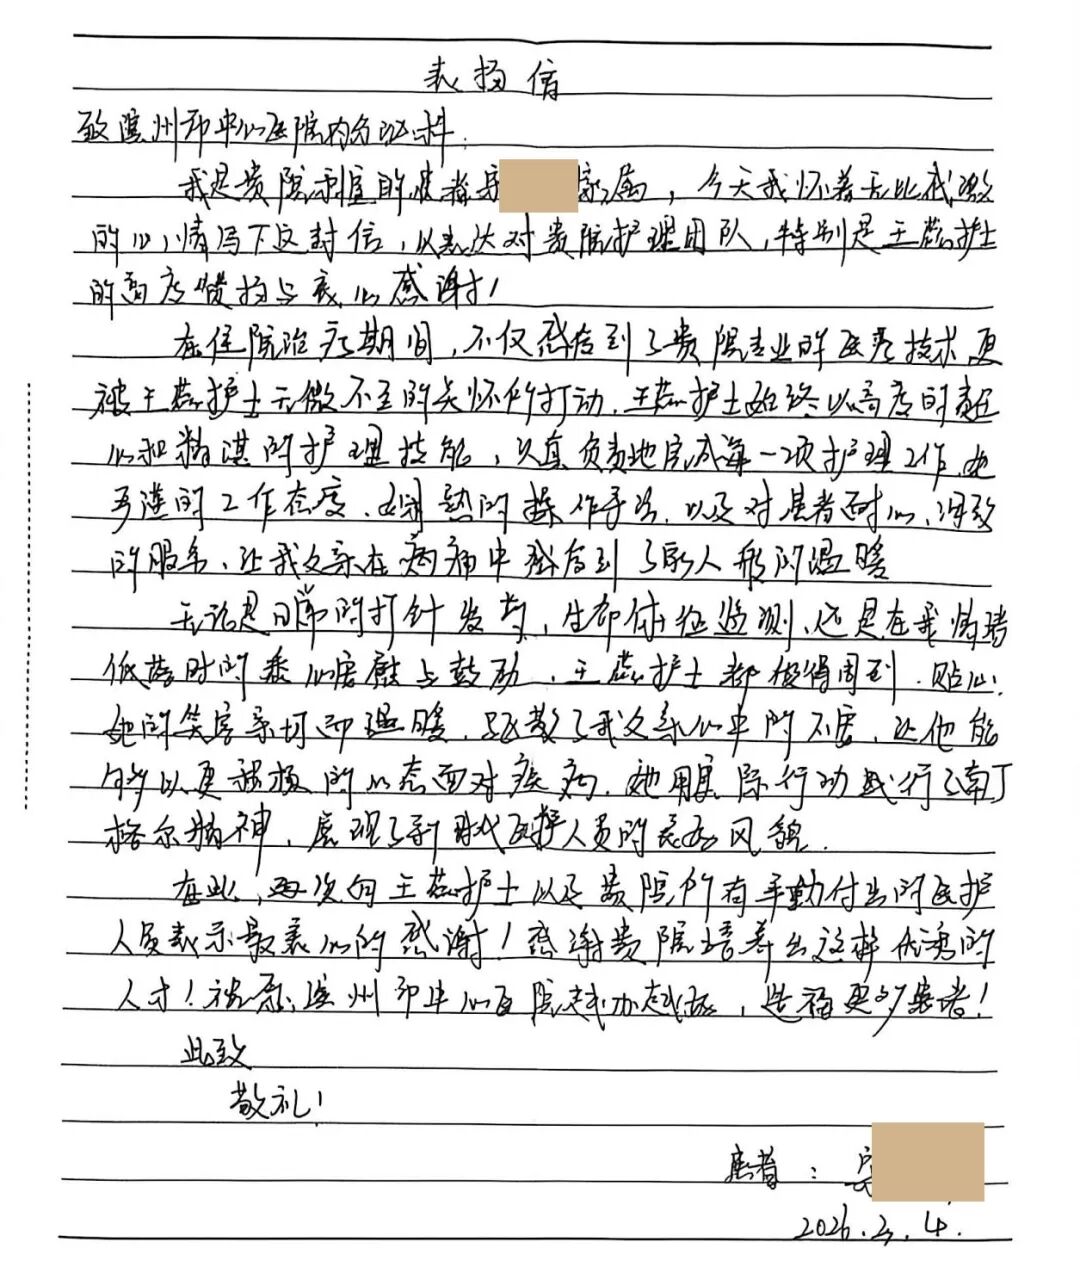 表扬信
致滨州市中心医院内分泌科:
我是贵院 患者 家属，今天我怀着无比感激
的心情写下这封信，以表达对贵院护理团队，特别是王蕊护士
的高度赞扬与衷心感谢！
在住院治疗期间，不仅感受到了贵院专业的医疗技术，更
被王蕊护士无微不至的关怀所打动，王蕊护士始终以高度的责任
心和精湛的护理技能，认真负责地完成每一项护理工作，她
严谨的工作态度、娴熟的操作手法，以及对患者耐心、细致
的服务，让我父亲在病痛中感受到了家人般的温暖
无论是日常的打针发药，生命体征监测，还是在我情绪
低落时的悉心安慰与鼓励，王蕊护士都做得周到、贴心，
她的笑容亲切而温暖，驱散了我父亲心中的不安，让他能
够以更积极的心态面对疾病，她用实际行动践行了南丁
格尔精神，展现了新时代医护人员的良好风貌.
在此，再次向王蕊护士以及贵院所有辛勤付出的医护
人员表示最衷心的感谢！感谢贵院培养出这样优秀的
人才！祝愿滨州市中心医院越办越好，造福更多患者！
此致
敬礼！
患者：
2026.2.4.